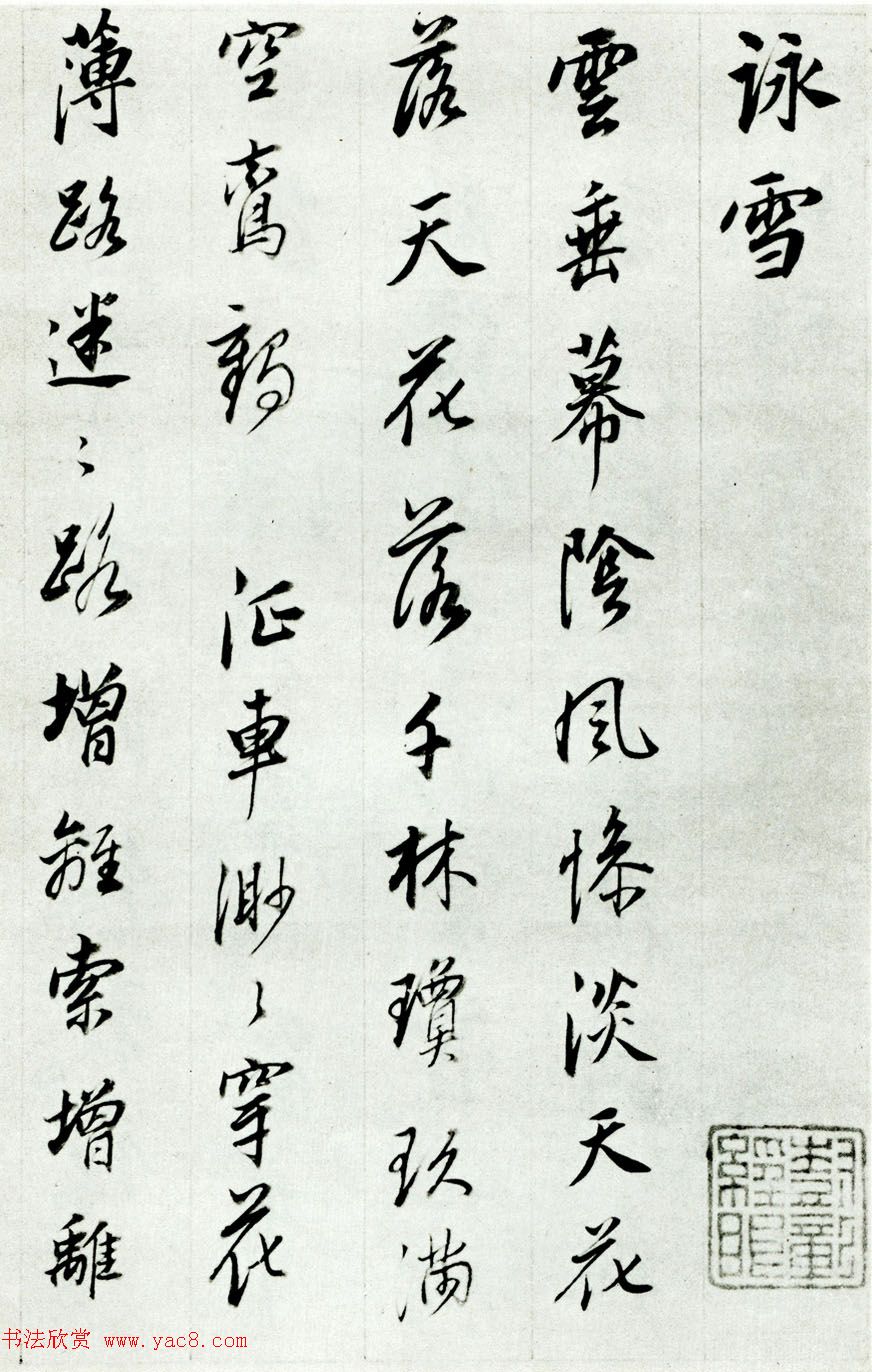 詠雪
雲垂幕陰風慘淡天花
落天花落千林瓊玖滿
空鸞鶴 征車渺〻穿花
薄路迷〻路增離索增離
书法欣赏 www.yac8.com